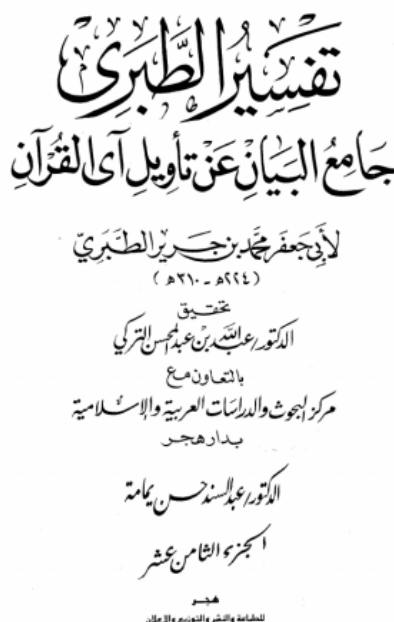 تَفْسِيرُ الطَّبَرِي
جَامِعُ البَيَانِ عَنْ تَأْوِيلِ آىِ القُرْآنِ
لأَبِي جَعْفَر مُحَمَّد بن جَرِير الطَّبَرِيّ
(٢٢٤هـ - ٣١٠هـ)
تحقيق
الدكتور/ عبد الله بن عبد المحسن التركي
بالتعاون مع
مركز البحوث والدراسات العربية والإسلامية
بدار هجر
الدكتور/ عبد السند حسن يمامة
الجزء الثامن عشر
هجر
للطباعة والنشر والتوزيع والإعلان